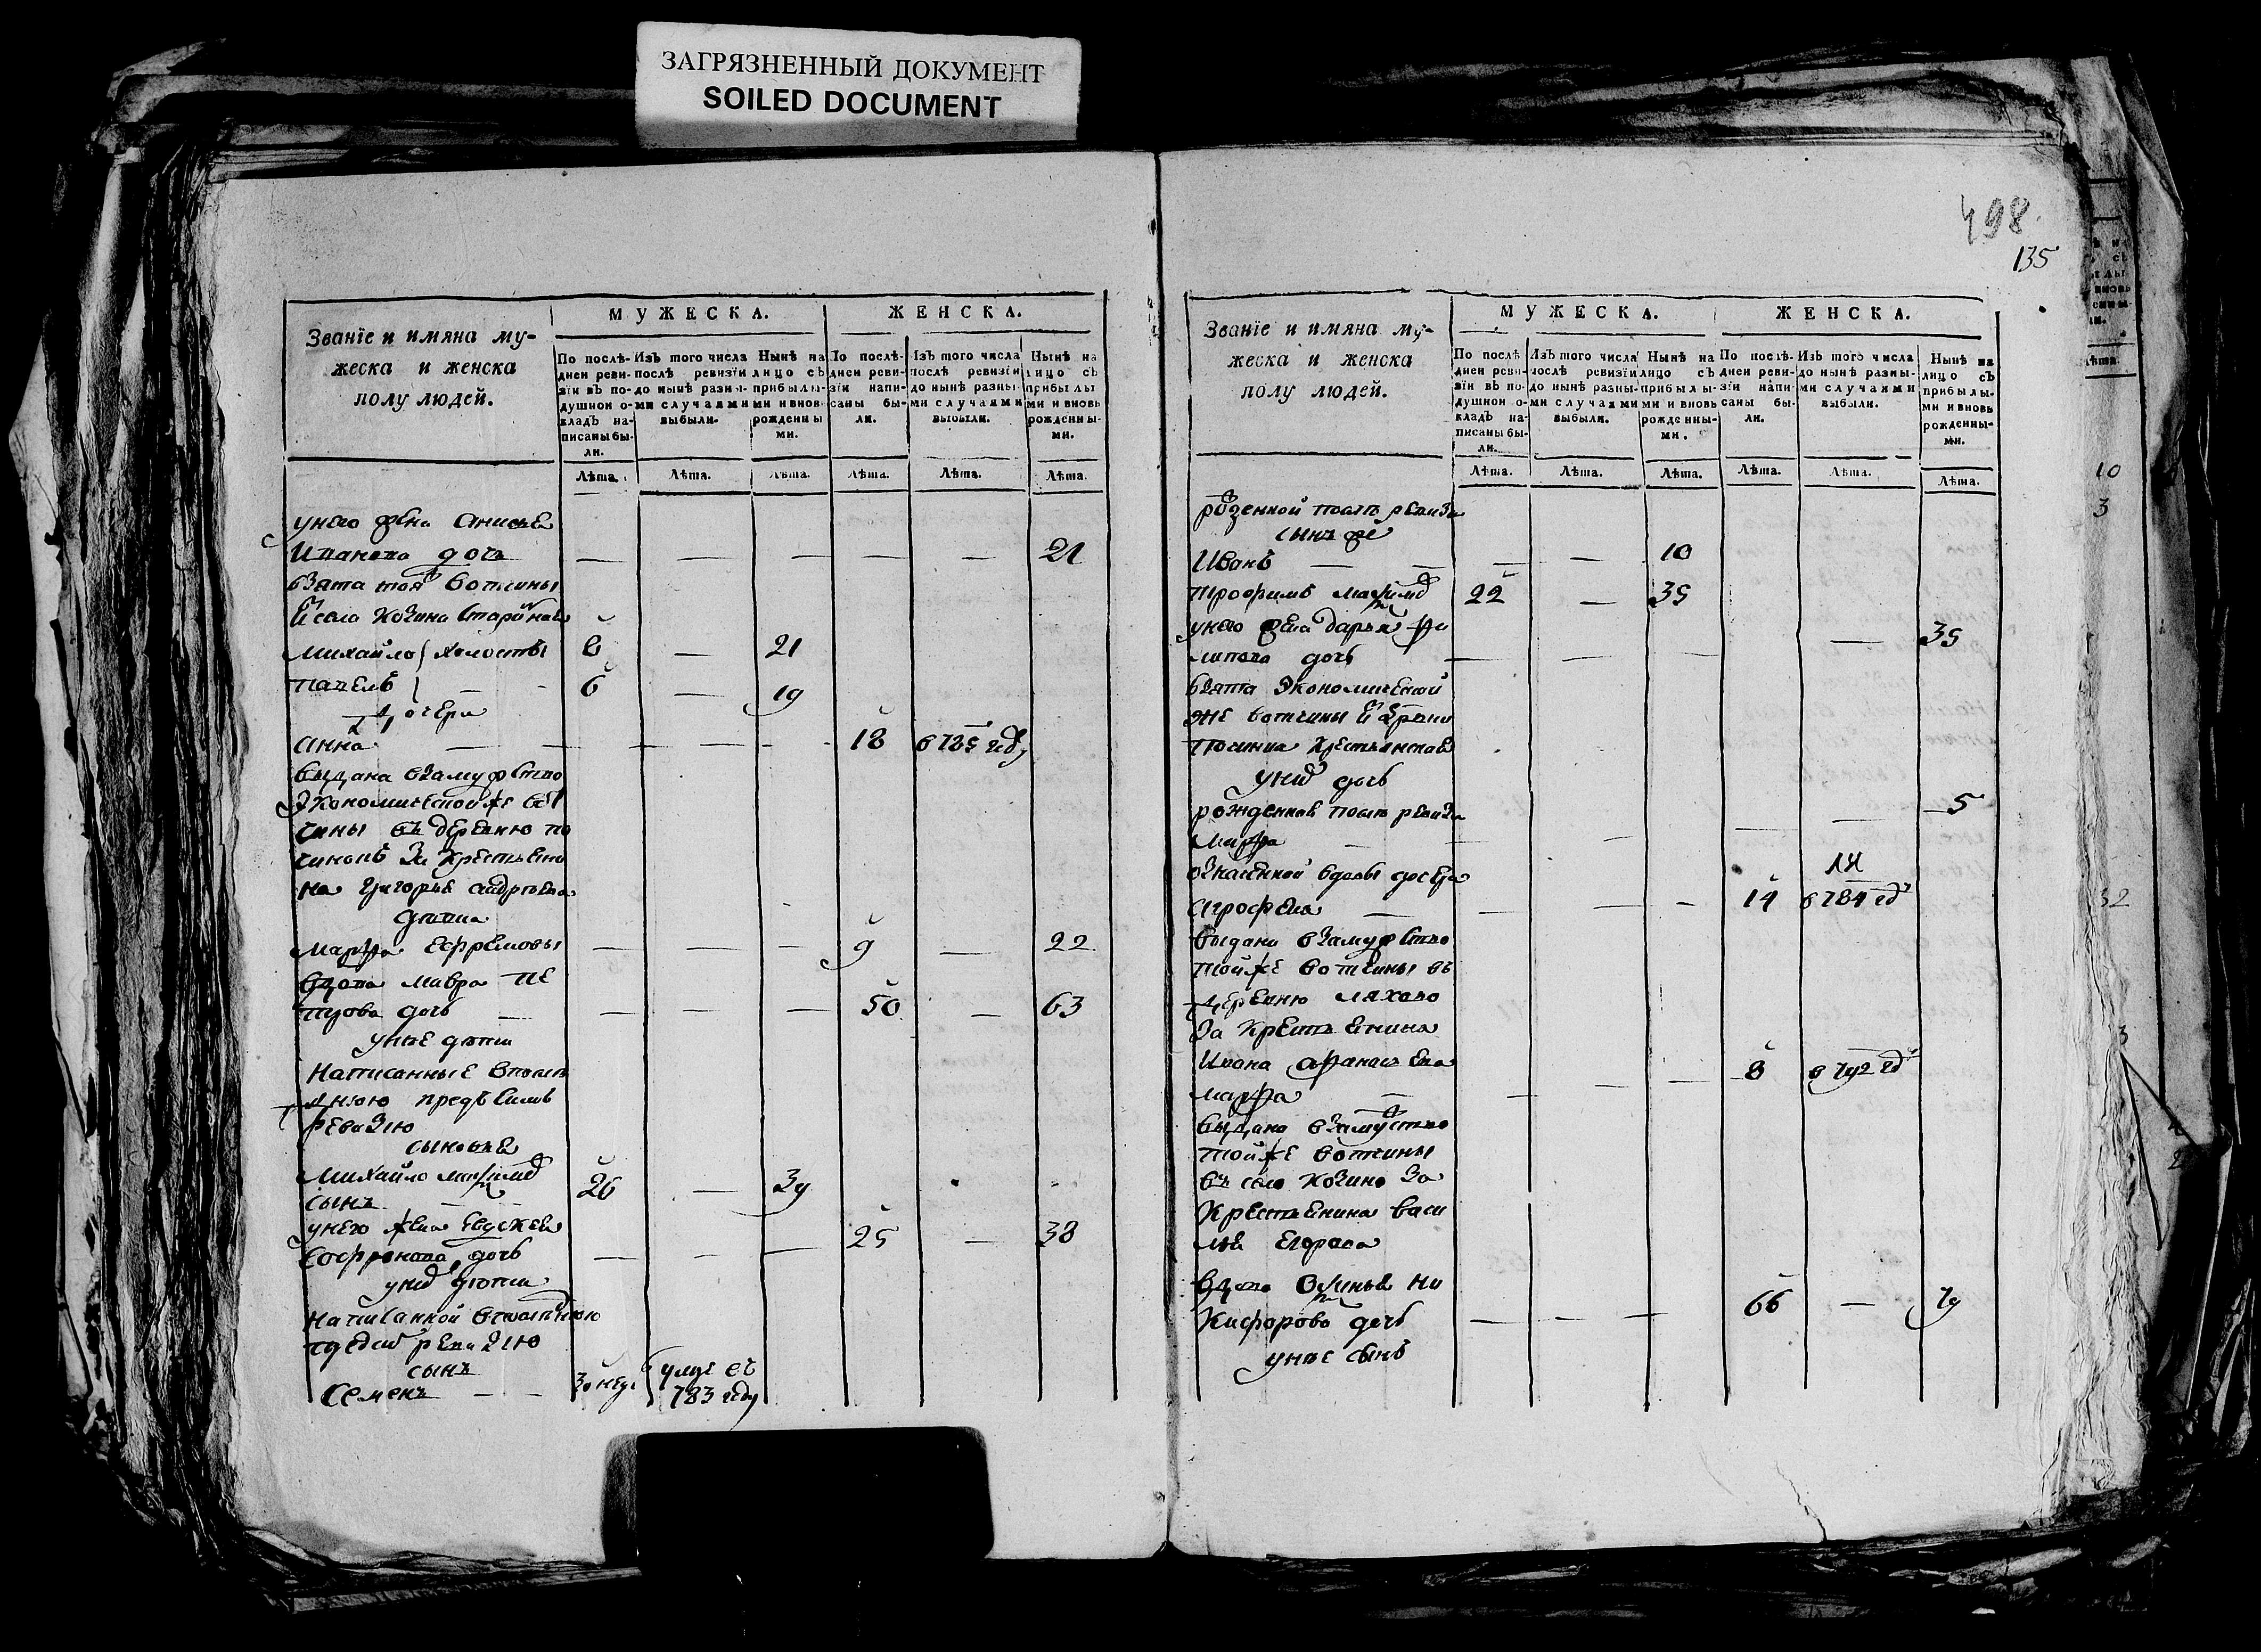 ЗАГРЯЗНЕННЫЙ ДОКУМЕНТ
SOILED DOCUMENT
498.
135
Званїе и имяна му-
жеска и женска
полу людей.
МУЖЕСКА.
ЖЕНСКА.
По послѣ-
дней реви-
зїи въ по-
душной о-
кладъ на-
писаны бы-
ли.
Изъ того числа
послѣ ревизїи
до нынѣ разны-
ми случаями
выбыли.
Нынѣ на
лицо съ
прибылы-
ми и вновь
рожденны
ми.
По послѣ-
дней реви-
зїи напи-
саны бы-
ли.
Изъ того числа
послѣ ревизїи
до нынѣ разны-
ми случаями
выбыли.
Нынѣ на
лицо съ
прибылы
ми и вновь
рожденны-
ми.
Лѣта. Лѣта. Лѣта. Лѣта. Лѣта. Лѣта.
у него жена
Иванова дочь — — — — — 21
взята той вотчины
села
Михайло холосты 8 — 21
Павелъ — 6 — 19
дочери
Анна — — — — 18 в 785 году
выдана взамужство
экономической же вот
чины въ деревню по
чинокъ за крестьяни
на Григорья Андреева
дѣти
Марфа Ефремовы — — — 9 — 22
вдова Мавра Пе
трова дочь — — — — 50 — 63
у нее дѣти
написанные в послѣ
днюю предъ симъ
ревизию
сыновья
Михайло
сынъ 26 — 39
у него жена
Софронова дочь — — — 25 — 38
у них дѣти
написанной в последнюю
пред сим ревизию
сынъ
Семенъ — — умре въ
783 году
Званїе и имяна му-
жеска и женска
полу людей.
МУЖЕСКА.
ЖЕНСКА.
По послѣ
дней реви-
зїи въ по-
душной о-
кладъ на-
писаны бы-
ли.
Изъ того числа
послѣ ревизїи
до нынѣ разны-
ми случаями
выбыли.
Нынѣ на
лицо съ
прибылы-
ми и вновь
рожденны-
ми.
По послѣ-
дней реви-
зїи напи-
саны бы-
ли.
Изъ того числа
до нынѣ разны-
ми случаями
выбыли.
Нынѣ на
лицо съ
прибылы-
ми и вновь
рожденны-
ми.
Лѣта. Лѣта. Лѣта. Лѣта. Лѣта. Лѣта.
розженной послѣ ревизи
сынъ же
Иванъ — — — 10
Трофимъ 22 — 35
у него жена Дарья Фи
липова дочь — — — — 35
взята экономической
же вотчины
починка крестьянская
у них дочь
рожденная послѣ ревизи
Марфа — — — — — 5
означенной вдовы дочери
Агрофена — — — — 14 в 784 год
выдана взамужство
той же вотчины въ
деревню Ляхово
за крестьянина
Ивана Афанасьева
Марфа — — — — 8 в 792 год
выдана взамужство
той же вотчины
въ село за
крестьянина Васи
лья Егорова
вдова Ни
кифорова дочь — — — 66 — 79
у нее сынъ